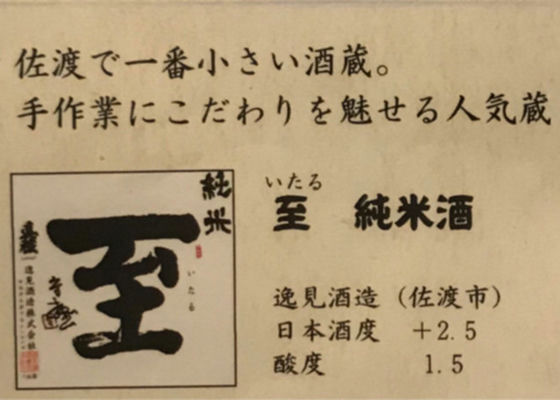 佐渡で一番小さい酒蔵。
手作業にこだわりを魅せる人気蔵
純米
至
いたる
逸見酒造株式会社
いたる
至 純米酒
逸見酒造(佐渡市)
日本酒度 +2.5
酸度 1.5